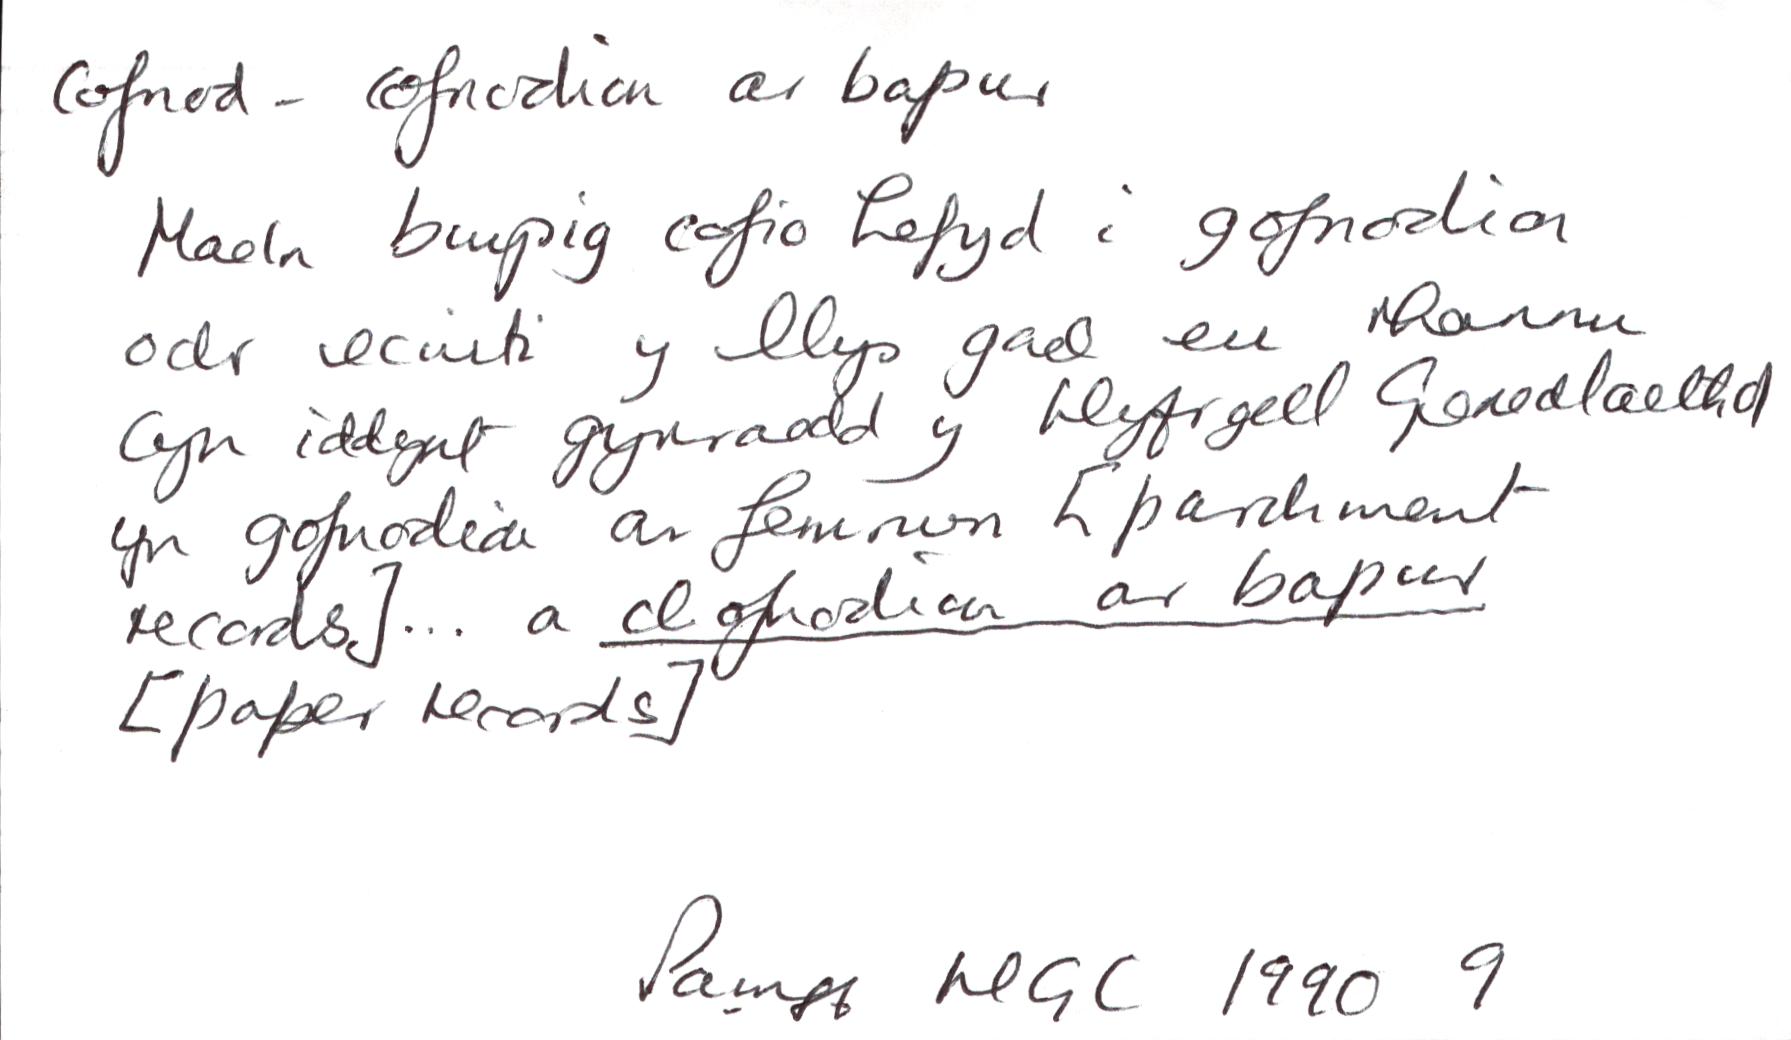 Cofnod - cofnodion ar bapur
Maeln bwysig cofio hefyd i gofnodion
odr y llys gael eu rhannu
Cyn iddynt gyrraedd y Llyfrgell Genedlaethol
yn gofnodion ar femrwn [parchment
records]... a chofnodion ar bapur
[paper records]
Pamff LlGC 1990 9